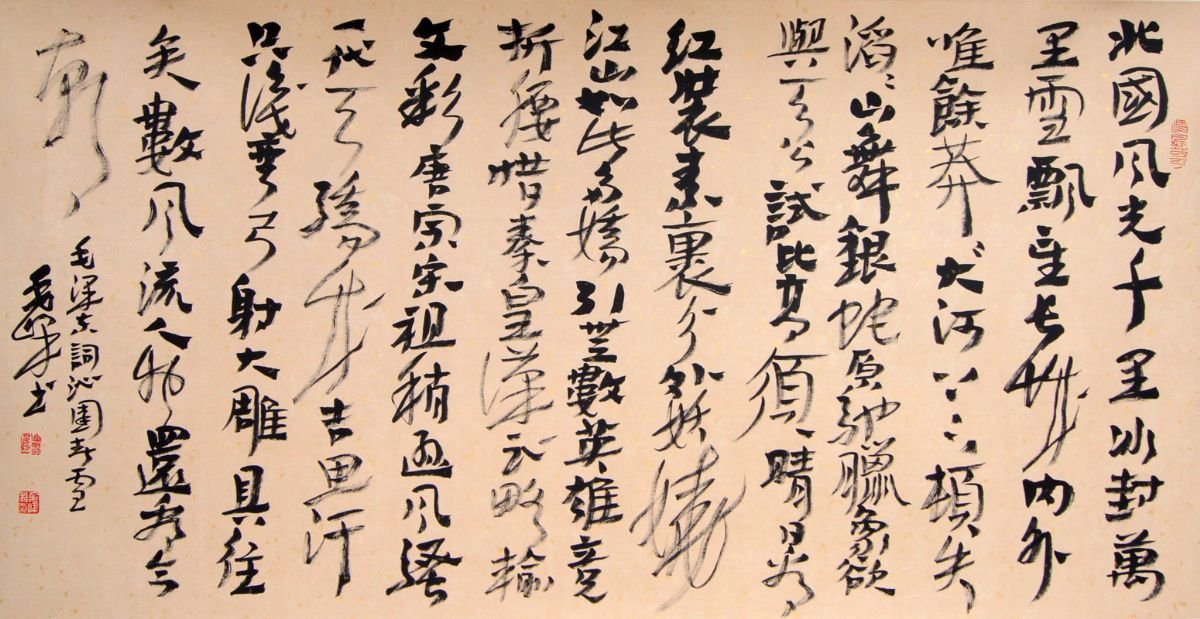 北國风光千里冰封萬
里雪飄望長城內外
唯餘莽〻大河上下頓失
滔〻山舞銀蛇原馳臘象欲
與天公試比高須晴日看
紅裝素裹分外妖嬈
江山如此多嬌引無數英雄竞
折腰惜秦皇漢武略輸
文彩唐宗宋祖稍遜风騷
一代天驕成吉思汗
只識彎弓射大雕具往
矣數风流人物還看今
朝
毛澤東詞沁園春雪